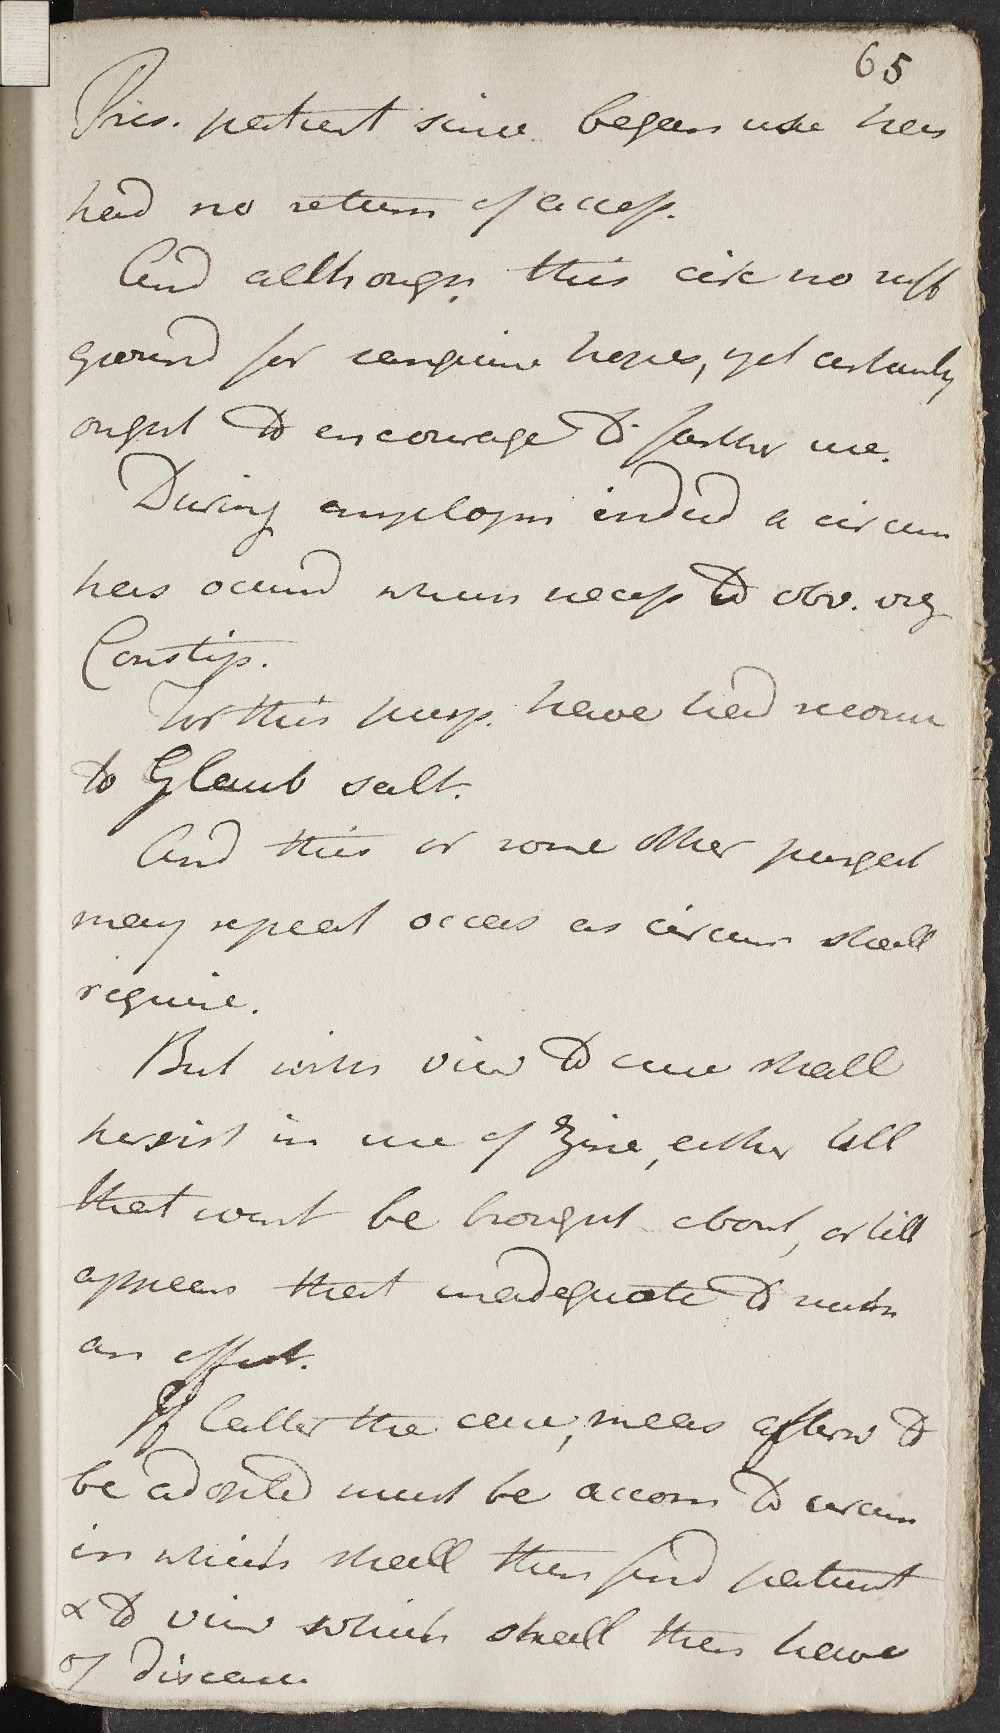 65
Pres. patient since began use has
had no return of access.
And although this circ no suff
ground for sanguine hopes, yet certainly
ought to encourage to farther use.
During employm indeed a circum
has occurred whence necess to obv. viz
Constip.
For this purp. have had recourse
to Glaub salt.
And this or some other purgat
may repeat occas as circum shall
require.
But with view to cure shall
persist in use of Zinc, either till
that event be brought about, or till
appears that inadequate to such
an effect.
If latter the case, meas afterw to
be adopted must be accom to circum
in which shall then find patient
& to view which shall then have
of disease.